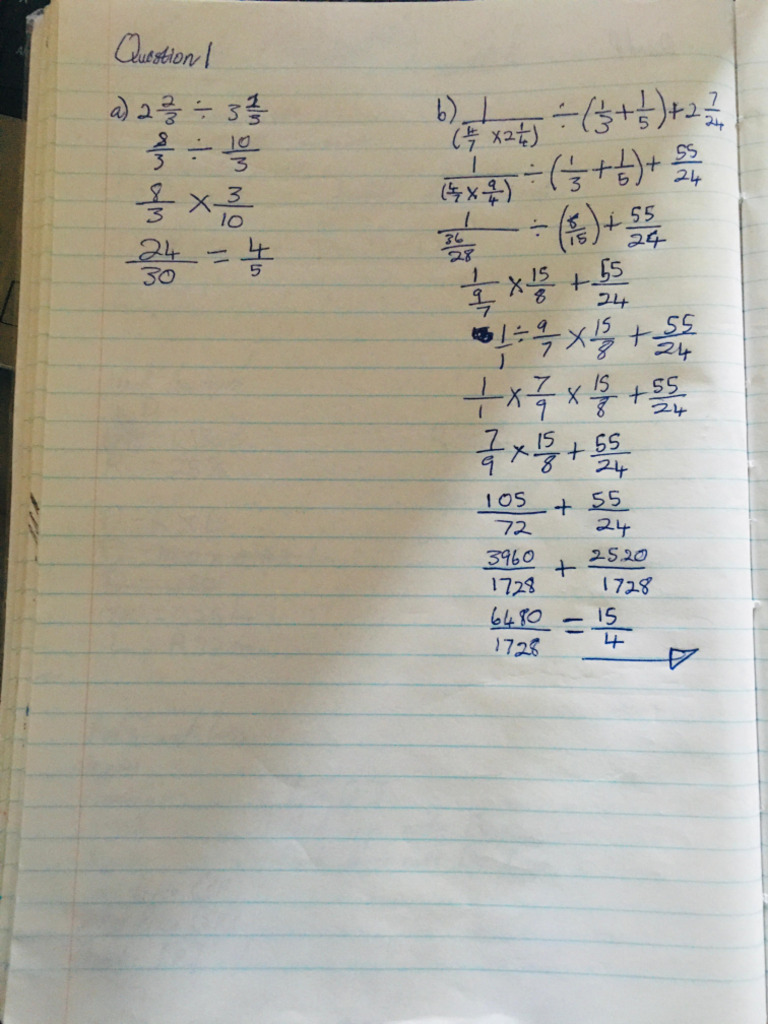 Question 1
a) 2 2/3 ÷ 3 1/3
8/3 ÷ 10/3
8/3 × 3/10
24/30 = 4/5
b) 1/(4/7 × 2 1/4) ÷ (1/3 + 1/5) + 2 7/24
1/(4/7 × 9/4) ÷ (1/3 + 1/5) + 55/24
1/(36/28) ÷ (8/15) + 55/24
1/(9/7) × 15/8 + 55/24
1/1 ÷ 9/7 × 15/8 + 55/24
1/1 × 7/9 × 15/8 + 55/24
7/9 × 15/8 + 55/24
105/72 + 55/24
3960/1728 + 2520/1728
6480/1728 = 15/4